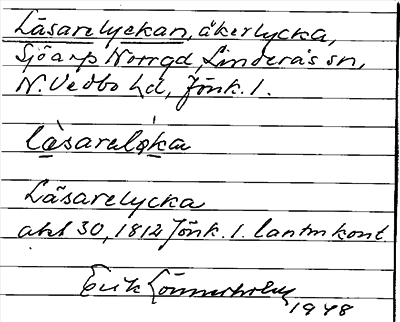 Läsarelyckan, åkerlycka,
Sjöarp Norrgd, Linderås sn,
N. Vedbo hd, Jönk. l.
læ̀sareløka
Läsarelycka
akt 30, 1812 Jönk. l. lantm kont
Erik
1948